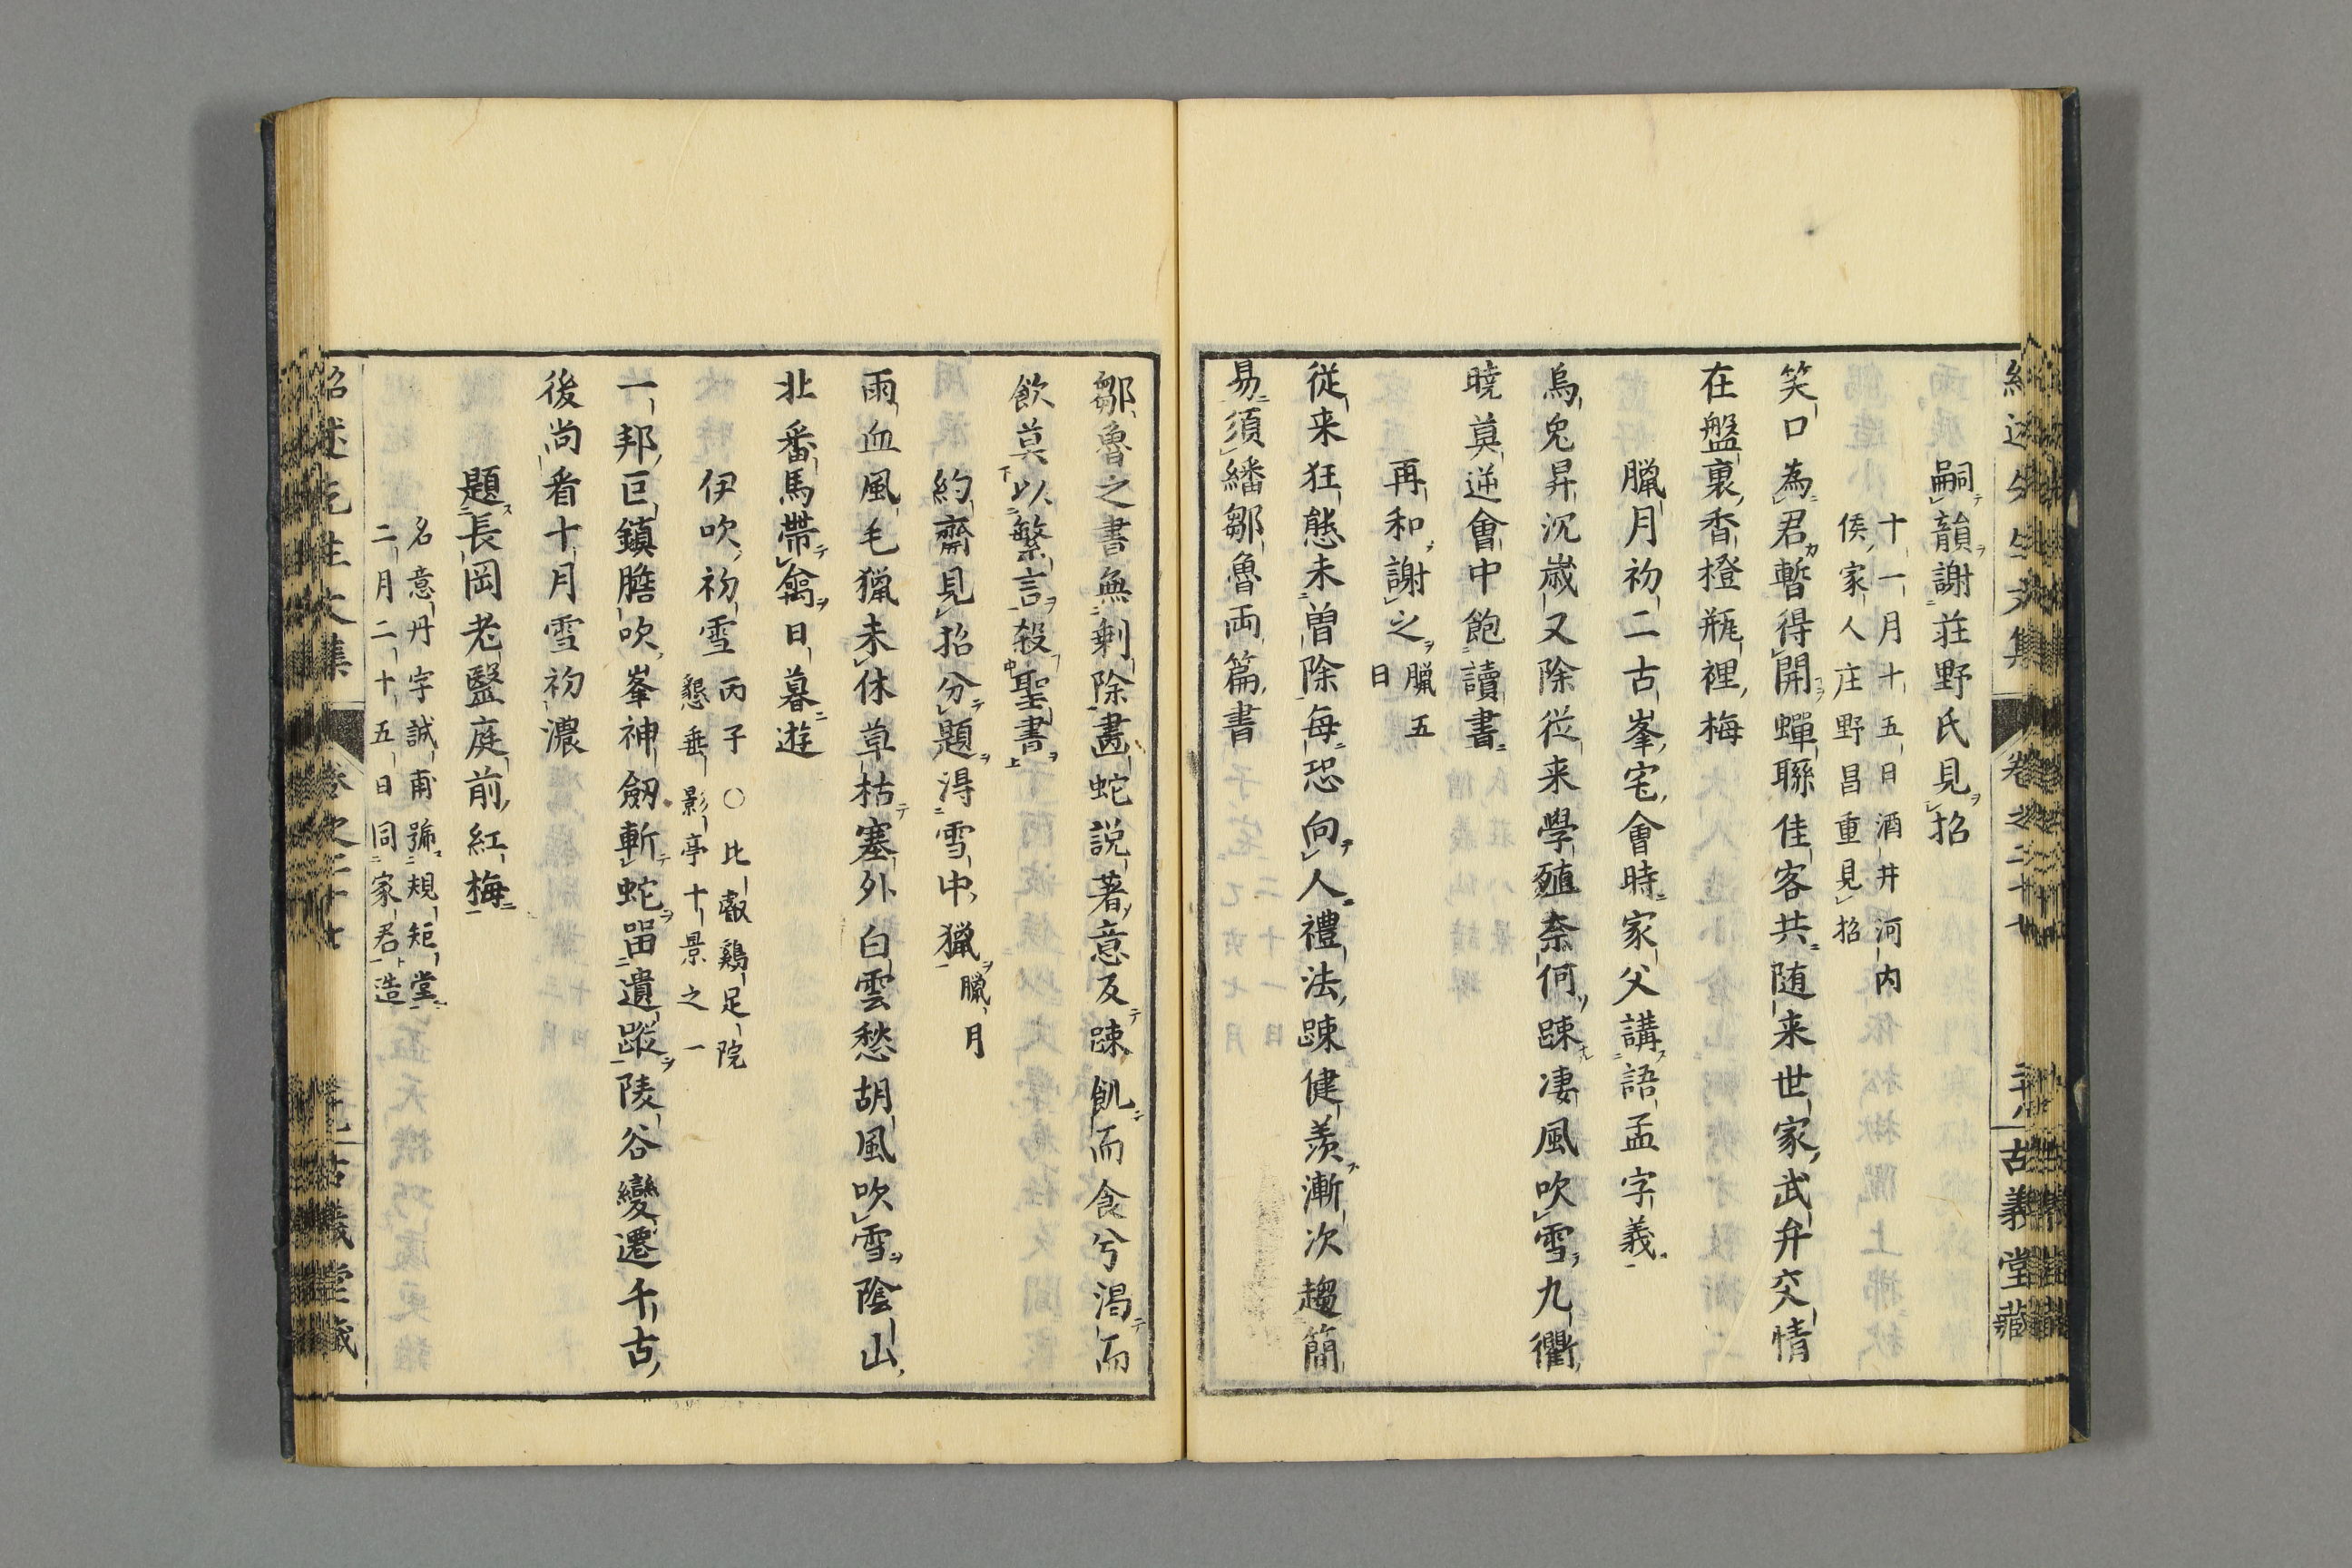 嗣韻謝莊野氏見招
十一月十五日酒井河内
侯家人庄野昌重見招
笑口為君暫得開蟬聯佳客共随来世家武弁交情
在盤裏香橙瓶裡梅
臘月初二古峯宅會時家父講語孟字義
烏兔昇沉歳又除従来學殖奈何踈凄風吹雪九衢
曉莫逆會中飽讀書
再和謝之臘五
日
従来狂態未曽除每恐向人禮法踈健羨漸次趨簡
易須繙鄒魯両篇書
鄒魯之書無剰除畵蛇說著意反踈飢而食兮渴而
飲莫以繁言殺聖書
約齋見招分題淂雪中獵臘月
雨血風毛獵未休草枯塞外白雲愁胡風吹雪陰山
北番馬帶禽日暮遊
伊吹初雪丙子〇比叡鷄足院
懇垂影亭十景之一
一邦巨鎮膽吹峯神劔斬蛇畄遺蹤陵谷變遷千古
後尚看十月雪初濃
題長岡老醫庭前紅梅
名意丹字誠甫號規矩堂
二月二十五日同家君造
卷之二十七
古義堂藏
紹述先生文集
古義堂藏